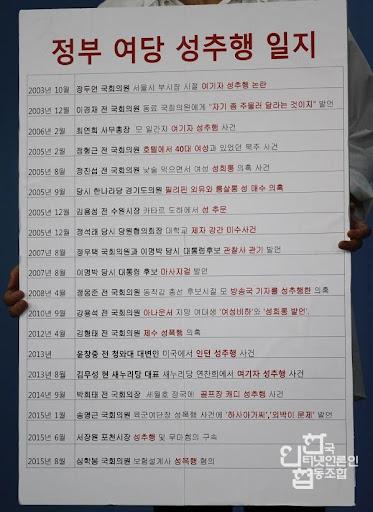 정부 여당 성추행 일지
2003년 10월 정두언 국회의원 서울시 부시장 시절 여기자 성추행 논란
2003년 12월 이경재 전 국회의원 동료 국회의원에게 "자기 좀 주물러 달라는 것이지" 발언
2006년 2월 최연희 사무총장 모 일간지 여기자 성추행 사건
2005년 2월 정형근 전 국회의원 호텔에서 40대 여성과 있었던 묵주 사건
2005년 8월 정진섭 전 국회의원 낮술 먹으면서 여성 성희롱 의혹
2005년 9월 당시 한나라당 경기도의원 필리핀 외유와 룸살롱 성 매수 의혹
2005년 12월 김용성 전 수원시장 카타르 도하에서 성 추문
2005년 12월 정석래 당시 당원협의회장 대학교 제자 강간 미수사건
2007년 8월 정우택 국회의원과 이명박 당시 대통령 후보 관찰사 관기 발언
2007년 8월 이명박 당시 대통령 후보 마사지걸 발언
2008년 4월 정몽준 전 국회의원 동작갑 총선 후보시절 모 방송국 기자를 성추행한 의혹
2010년 9월 강용석 전 국회의원 아나운서 지망 여대생 '여성비하'와 '성희롱 발언'.
2012년 4월 김형태 전 국회의원 제수 성폭행 의혹
2013년 윤창중 전 청와대 대변인 미국에서 인턴 성추행 사건
2013년 8월 김무성 현 새누리당 대표 새누리당 연찬회에서 여기자 성추행 사건
2014년 9월 박희태 전 국회의장 세월호 정국에 골프장 캐디 성추행 사건
2015년 1월 송영근 국회의원 육군여단장 성폭행 사건에 '하사아가씨','외박이 문제' 발언
2015년 6월 서장원 포천시장 성추행 및 무마혐의 구속
2015년 8월 심학봉 국회의원 보험설계사 성폭행 혐의
한국
인터넷언론인
협동조합